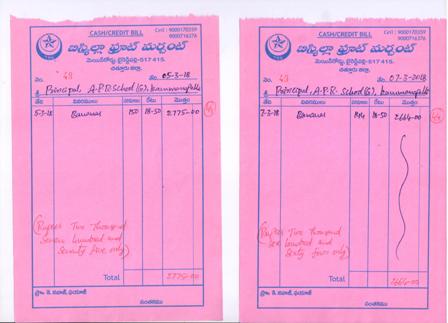 CASH/CREDIT BILL
Cell : 9000170359
9000716376
బిస్మిల్లా ఫ్రూట్ మర్చంట్
చిత్తూరు జిల్లా.
నెం. 48
తేది. 05-3-18
శ్రీ Principal, A.P.R. School (G),
తేది వివరములు రేటు మొత్తం
5-3-18 Bananas 150 18-50 2775-00
(Rupees Two Thousand
Seven hundred and
Seventy five only)
Total 2775-00
సంతకము
CASH/CREDIT BILL
Cell : 9000170359
9000716376
బిస్మిల్లా ఫ్రూట్ మర్చంట్
చిత్తూరు జిల్లా.
నెం. 49
తేది. 07-3-2018
శ్రీ Principal, A.P.R. School (G),
తేది వివరములు రేటు మొత్తం
7-3-18 Bananas 144 18-50 2664-00
(Rupees Two Thousand
Six hundred and
Sixty four only)
Total 2664-00
సంతకము